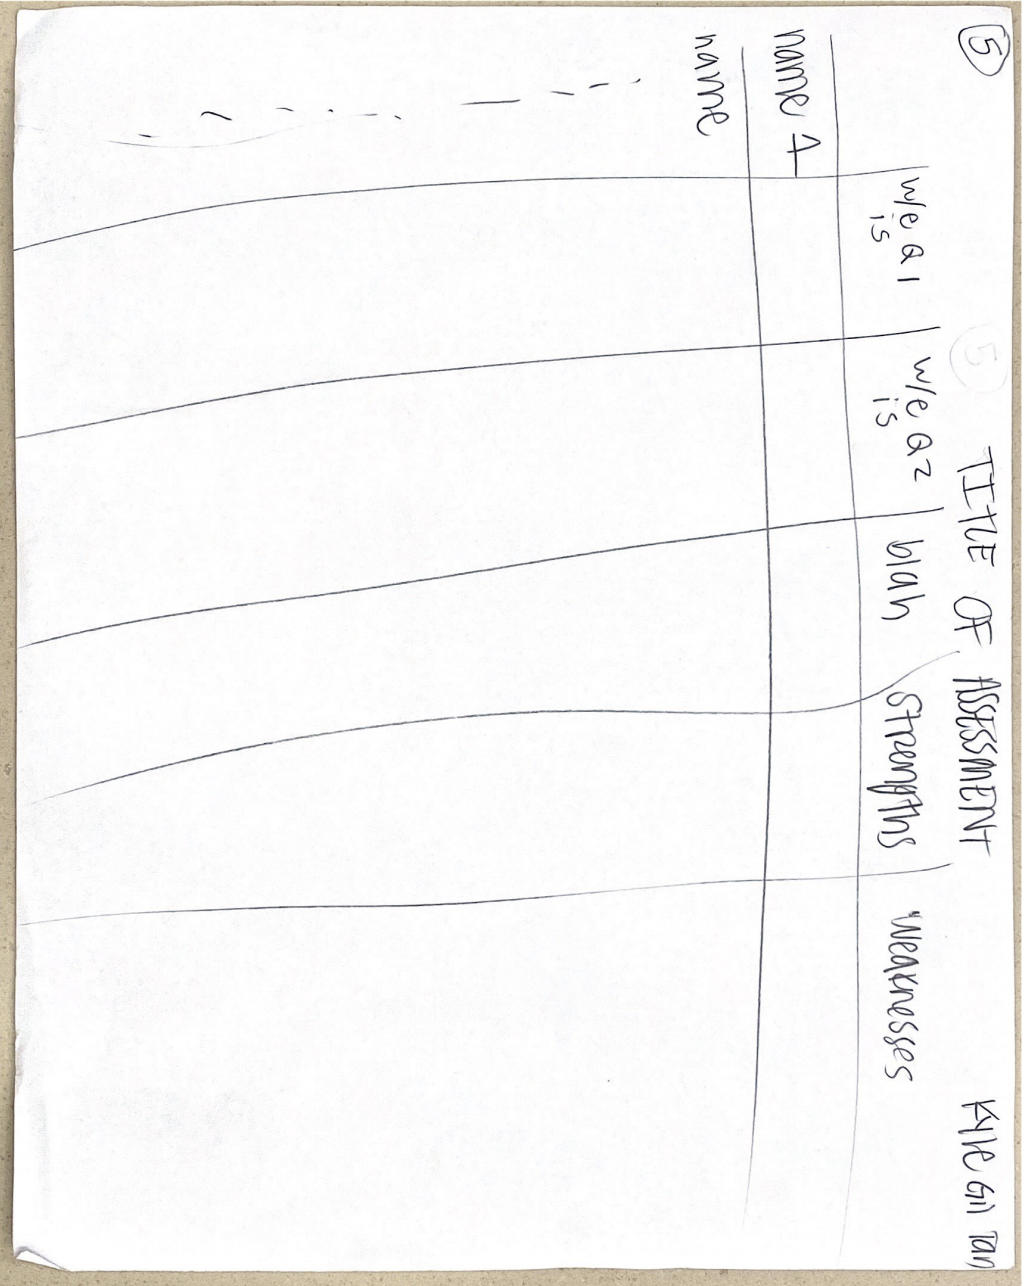 5
TITLE OF ASSESSMENT
Kyle Gil Tan
w/e Q1 is
w/e Q2 is
blah
strengths
weaknesses
name 1
name